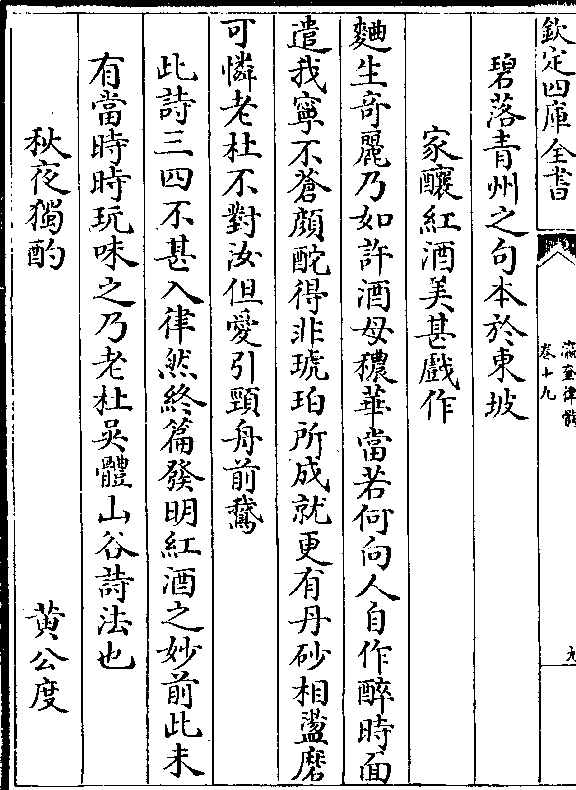 欽定四庫全書
瀛奎律髓
卷十九
九
碧落青州之句本於東坡
家釀紅酒美甚戲作
麯生奇麗乃如許酒母穠華當若何向人自作醉時面
遣我寧不蒼顔酡得非琥珀所成就更有丹砂相盪磨
可憐老杜不對汝但愛引頸舟前鵞
此詩三四不甚入律然終篇發明紅酒之妙前此未
有當時時玩味之乃老杜吳體山谷詩法也
秋夜獨酌 黄公度